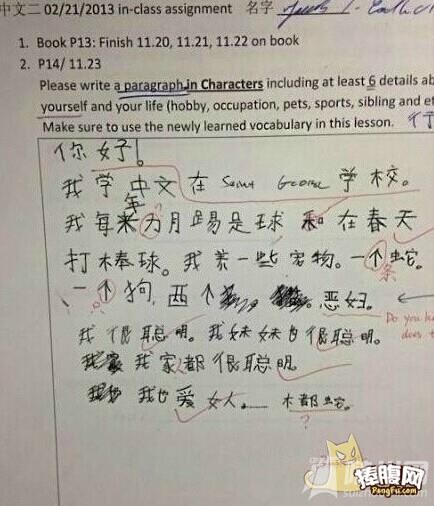 中文二 02/21/2013 in-class assignment 名字
1. Book P13: Finish 11.20, 11.21, 11.22 on book
2. P14/ 11.23
Please write a paragraph in Characters including at least 6 details ab
yourself and your life (hobby, occupation, pets, sports, sibling and et
Make sure to use the newly learned vocabulary in this lesson.
你好!
我学中文在 Saint George 学校。
年
我每 月踢足球 和在春天
打棒球。我养一些宠物。一个蛇。
条
一个狗,两个 恶妇。
Do you k
does t
我很聪明。我妹妹也很聪明。
我家都很聪明。
我也爱女人。 木都蛇。
?
捧腹网
PengFu.com